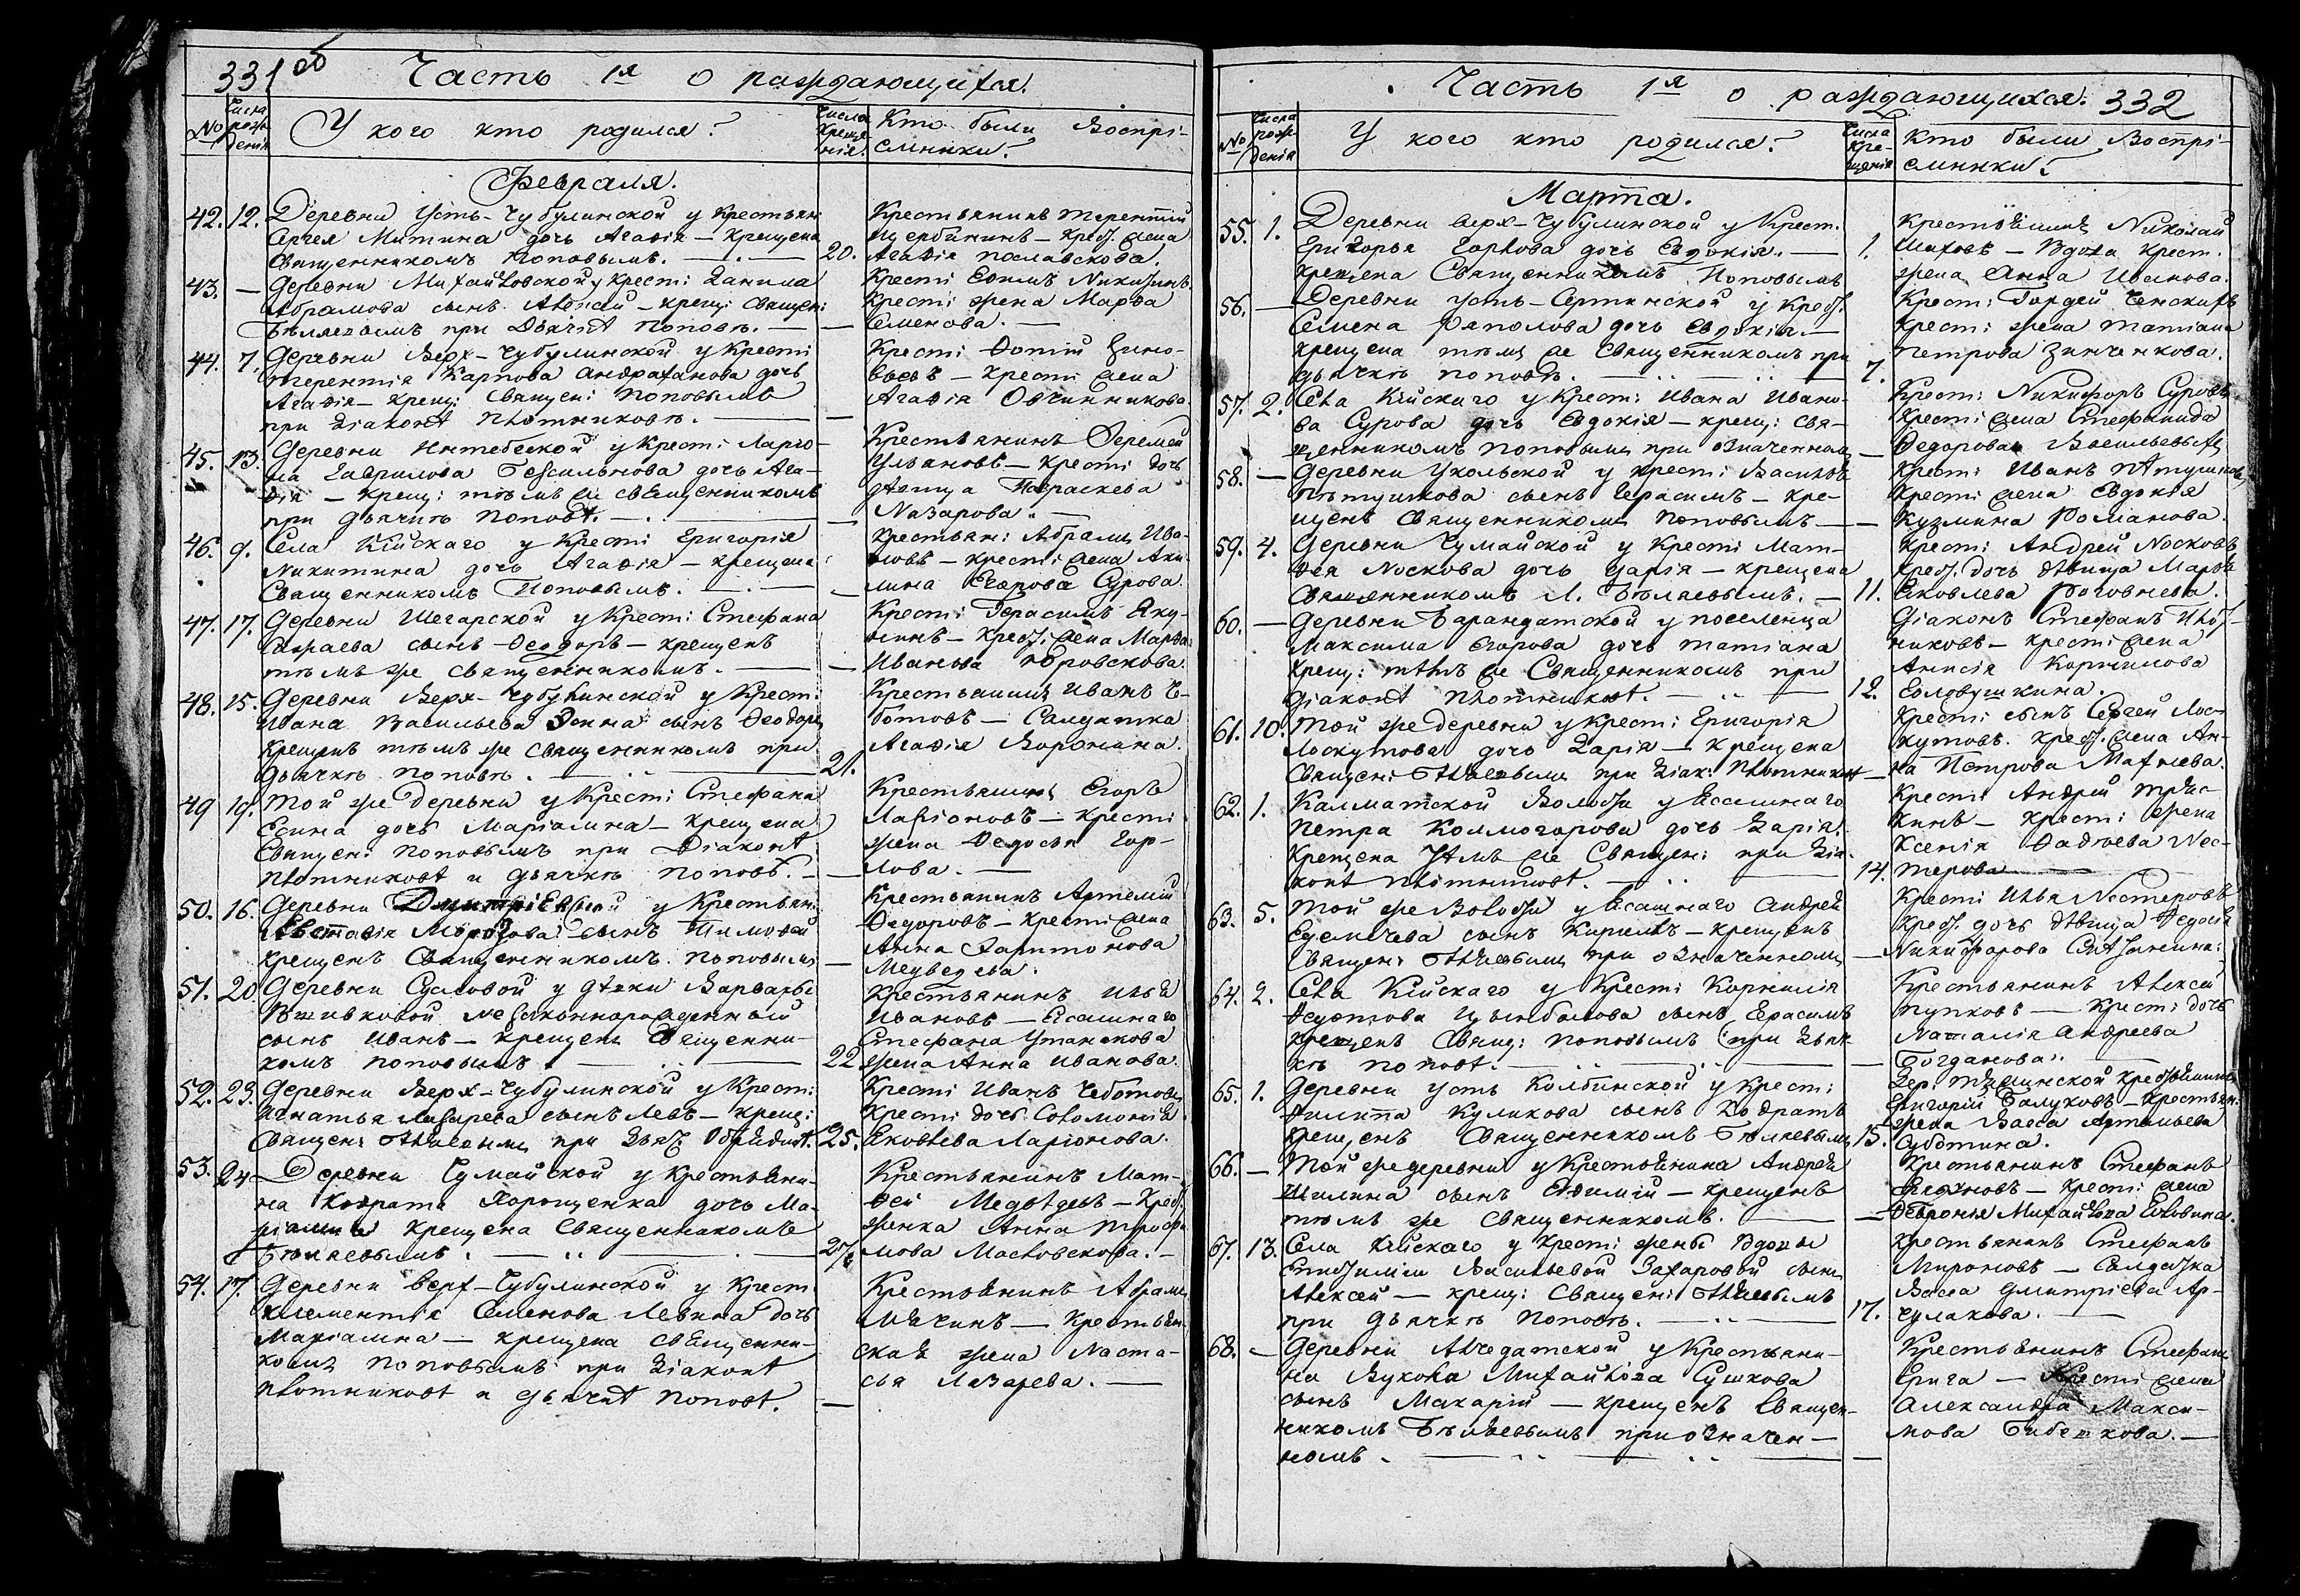 331 об
Часть 1я о раждающихся.
№
Числа рожденія
У кого кто родился?
Числа крещенія.
Кто были Воспріемники?
Февраля.
42. 12. Деревни Усть-Чубулинской у крестьян
Сергея Митина дочь Агафія – крещена
Священникомъ Поповымъ. 20.
Крестьянинъ Терентій
Щербининъ – крест. жена
Агафія
43. – Деревни Михайловской у крест: Данила
Абрамова сынъ Алексей – крещ: Священ:
Бѣляевымъ при Дьячкѣ Поповѣ. —
Крест: Ефимъ Никитинъ
Крест: жена Марфа
Семенова. —
44. 7. Деревни Верх-Чубулинской у Крест:
Терентія Карпова дочь
Агафія – крещ: Священ: Поповымъ
при Діаконѣ Плотниковѣ. —
Крест: Фотій Зино-
вьевъ – крест: жена
Агафія Овчинникова.
45. 13. Деревни у Крест: Ларіо-
на Гаврилова дочь Ага-
фія – крещ: тѣмъ же священникомъ
при Дьячкѣ Поповѣ. —
Крестьянинъ Еремей
Ульяновъ – крест: дочь
дѣвица Параскева
Назарова. —
46. 9. Села Кійскаго у Крест: Григорія
Никитина дочь Агафія – крещена
Священникомъ Поповымъ. —
Крестьян: Абрамъ Ива-
новъ – крест: жена Аку-
лина Егорова Сурова.
47. 17. Деревни Шегарской у Крест: Стефана
сынъ Феодоръ – крещенъ
тѣмъ же священникомъ. —
Крест: Герасимъ Яку-
нинъ – крест: жена Марфа
Иванова
48. 15. Деревни Верх-Чубулинской у Крест:
Ивана Васильева сынъ Феодоръ
крещенъ тѣмъ же священникомъ при
Дьячкѣ Поповѣ. 21.
Крестьянинъ Иванъ Че-
ботовъ – Салдатка
Агафія Воронина.
49 19. Той же деревни у Крест: Стефана
Есина дочь Маріамна – крещена
Священ: Поповымъ при Діаконѣ
Плотниковѣ и Дьячкѣ Поповѣ. —
Крестьянинъ Егоръ
Ларіоновъ – крест:
жена Федосья Гор-
лова. —
50. 16. Деревни Дмитріевской у Крестьян:
Евстафія Морозова сынъ Тимофей
крещенъ Священникомъ Поповымъ —
Крестьянинъ Артемій
Федоровъ – крест: жена
Анна Харитонова
Медведева.
51. 20. Деревни Сусловой у дѣвки Варвары
незаконнорожденный
сынъ Иванъ – крещенъ Священни-
комъ Поповымъ. 22
Крестьянинъ Илья
Ивановъ – Ясашнаго
Стефана
жена Анна Иванова.
52. 23. Деревни Верх-Чубулинской у Крест:
Игнатья Лазарева сынъ Левъ – крещ:
Священ: Бѣляевымъ при Дьяч: 25.
Крест: Иванъ Чеботовъ
крест: дочь Соломонія
Яковлева Ларіонова.
53. 24 Деревни Чумайской у Крестьяни-
на Кодрата Хорощенка дочь Ма-
ріамна крещена Священникомъ
Бѣляевымъ. 27.
Крестьянинъ Мат-
фей Медвѣдевъ – Крес:
жинка Анна Трофи-
мова Масловскова. —
54. 17. Деревни Верх-Чубулинской у Крест:
Климентія Семенова Левина дочь
Маріамна – крещена Священни-
комъ Поповымъ при Діаконѣ
Плотниковѣ и Дьячкѣ Поповѣ. —
Крестьянинъ Абрамъ
Мячинъ – Крестьян-
ская жена Наста-
сья Лазарева. —
Часть 1я о раждающихся. 332
№
Числа рожденія
У кого кто родился?
Числа крещенія
Кто были Воспріемники?
Марта.
55. 1. Деревни Верх-Чубулинской у Крест.
Григорья Горлова дочь Евдокія. —
крещена Священникомъ Поповымъ 1.
Крестьянинъ Николай
– Вдова крест.
жена Анна Иванова.
56. – Деревни Усть-Сертинской у Крест.
Семена Раполова дочь Евдокія. —
крещена тѣмъ же Священникомъ при
дьячкѣ Поповѣ. 7.
Крест: Гордей
Крест: жена Татіана
Петрова Зинченкова.
57. 2. Села Кійскаго у Крест: Ивана Ивано-
ва Сурова дочь Евдокія – крещ: Свя-
щенникомъ Поповымъ при означенномъ —
Крест: Никифоръ Суровъ
Крест: жена Стефанида
Федорова Васильевыхъ
58. – Деревни Укольской у Крест: Василья
Пѣтушкова сынъ Герасимъ – кре-
щенъ Священникомъ Поповымъ —
Крест: Иванъ Пѣтушковъ
Крест: жена Евдокія
Кузмина Романова.
59. 4. Деревни Чумайской у Крест: Мат-
фея Носкова дочь Дарія – крещена
Священникомъ Л. Бѣляевымъ. 11.
Крест: Андрей Носковъ
Крес. дочь дѣвица Марфа
Яковлева Роговнева.
60. – Деревни Барандатской у поселенца
Максима Егорова дочь Татіана
крещ: тѣмъ же Священникомъ при
Діаконѣ Плотниковѣ. 12.
Діаконъ Стефанъ Плот-
никовъ – крест: жена
Анисія Корнилова
Головушкина.
61. 10. Той же деревни у Крест: Григорія
Лоскутова дочь Дарія – крещена
Священ: Бѣляевымъ при Діак: Плотниковѣ —
Крест: сынъ Сергей Лос-
кутовъ. крест. жена Ан-
на Петрова Махнева.
62. 1. Калматской Волости у Ясашнаго
Петра Колмогорова дочь Дарія.
крещена тѣмъ же Священ: при Діа-
конѣ Плотниковѣ. 14.
Крест: Андрей
Крест: жена
Ксенія Фадѣева Нес-
терова
63. 5. Той же Волости у Ясашнаго Андрея
сынъ Кирилъ – крещенъ
Священ: Бѣляевымъ при означенномъ —
Крест: Илья Нестеровъ
Крес. дочь дѣвица Федосія
Никифорова
64. 2. Села Кійскаго у Крест: Корнилія
Цымбалова сынъ Ерасимъ
крещенъ Свящ: Поповымъ при Дьяч-
кѣ Поповѣ. —
Крестьянинъ Алексей
Тупковъ – Крест: дочь
Наталія Андреева
Богданова.
65. 1. Деревни Усть Колбинской у Крест:
Филиппа Куликова сынъ Кодратъ
крещенъ Священникомъ Бѣляевымъ 15.
Дер. Тяжинской крестьянинъ
Григорій Балуковъ – Крестьян:
жена Васса Артамьева
Суботина.
66. – Той же деревни у Крестьянина Андрея
Шилина сынъ Евфимій – крещенъ
тѣмъ же Священникомъ. —
Крестьянинъ Стефанъ
– крест: жена
Февронья Михайлова
67. 13. Села Кійскаго у Крест: жены Вдовы
Васильевой Захаровой сынъ
Алексей – крещ: Священ: Бѣляевымъ
при Дьячкѣ Поповѣ. 17.
Крестьянинъ Стефанъ
Мироновъ – Салдатка
Васса Дмитріева Ар-
чулакова. —
68. – Деревни Алчедатской у Крестьяни-
на Вукола Михайлова Сушкова
сынъ Макарій – крещенъ Священ-
никомъ Бѣляевымъ при означен-
номъ. —
Крестьянинъ Стефанъ
Ерига – Крест: жена
Александра Макси-
мова Бибешкова. —